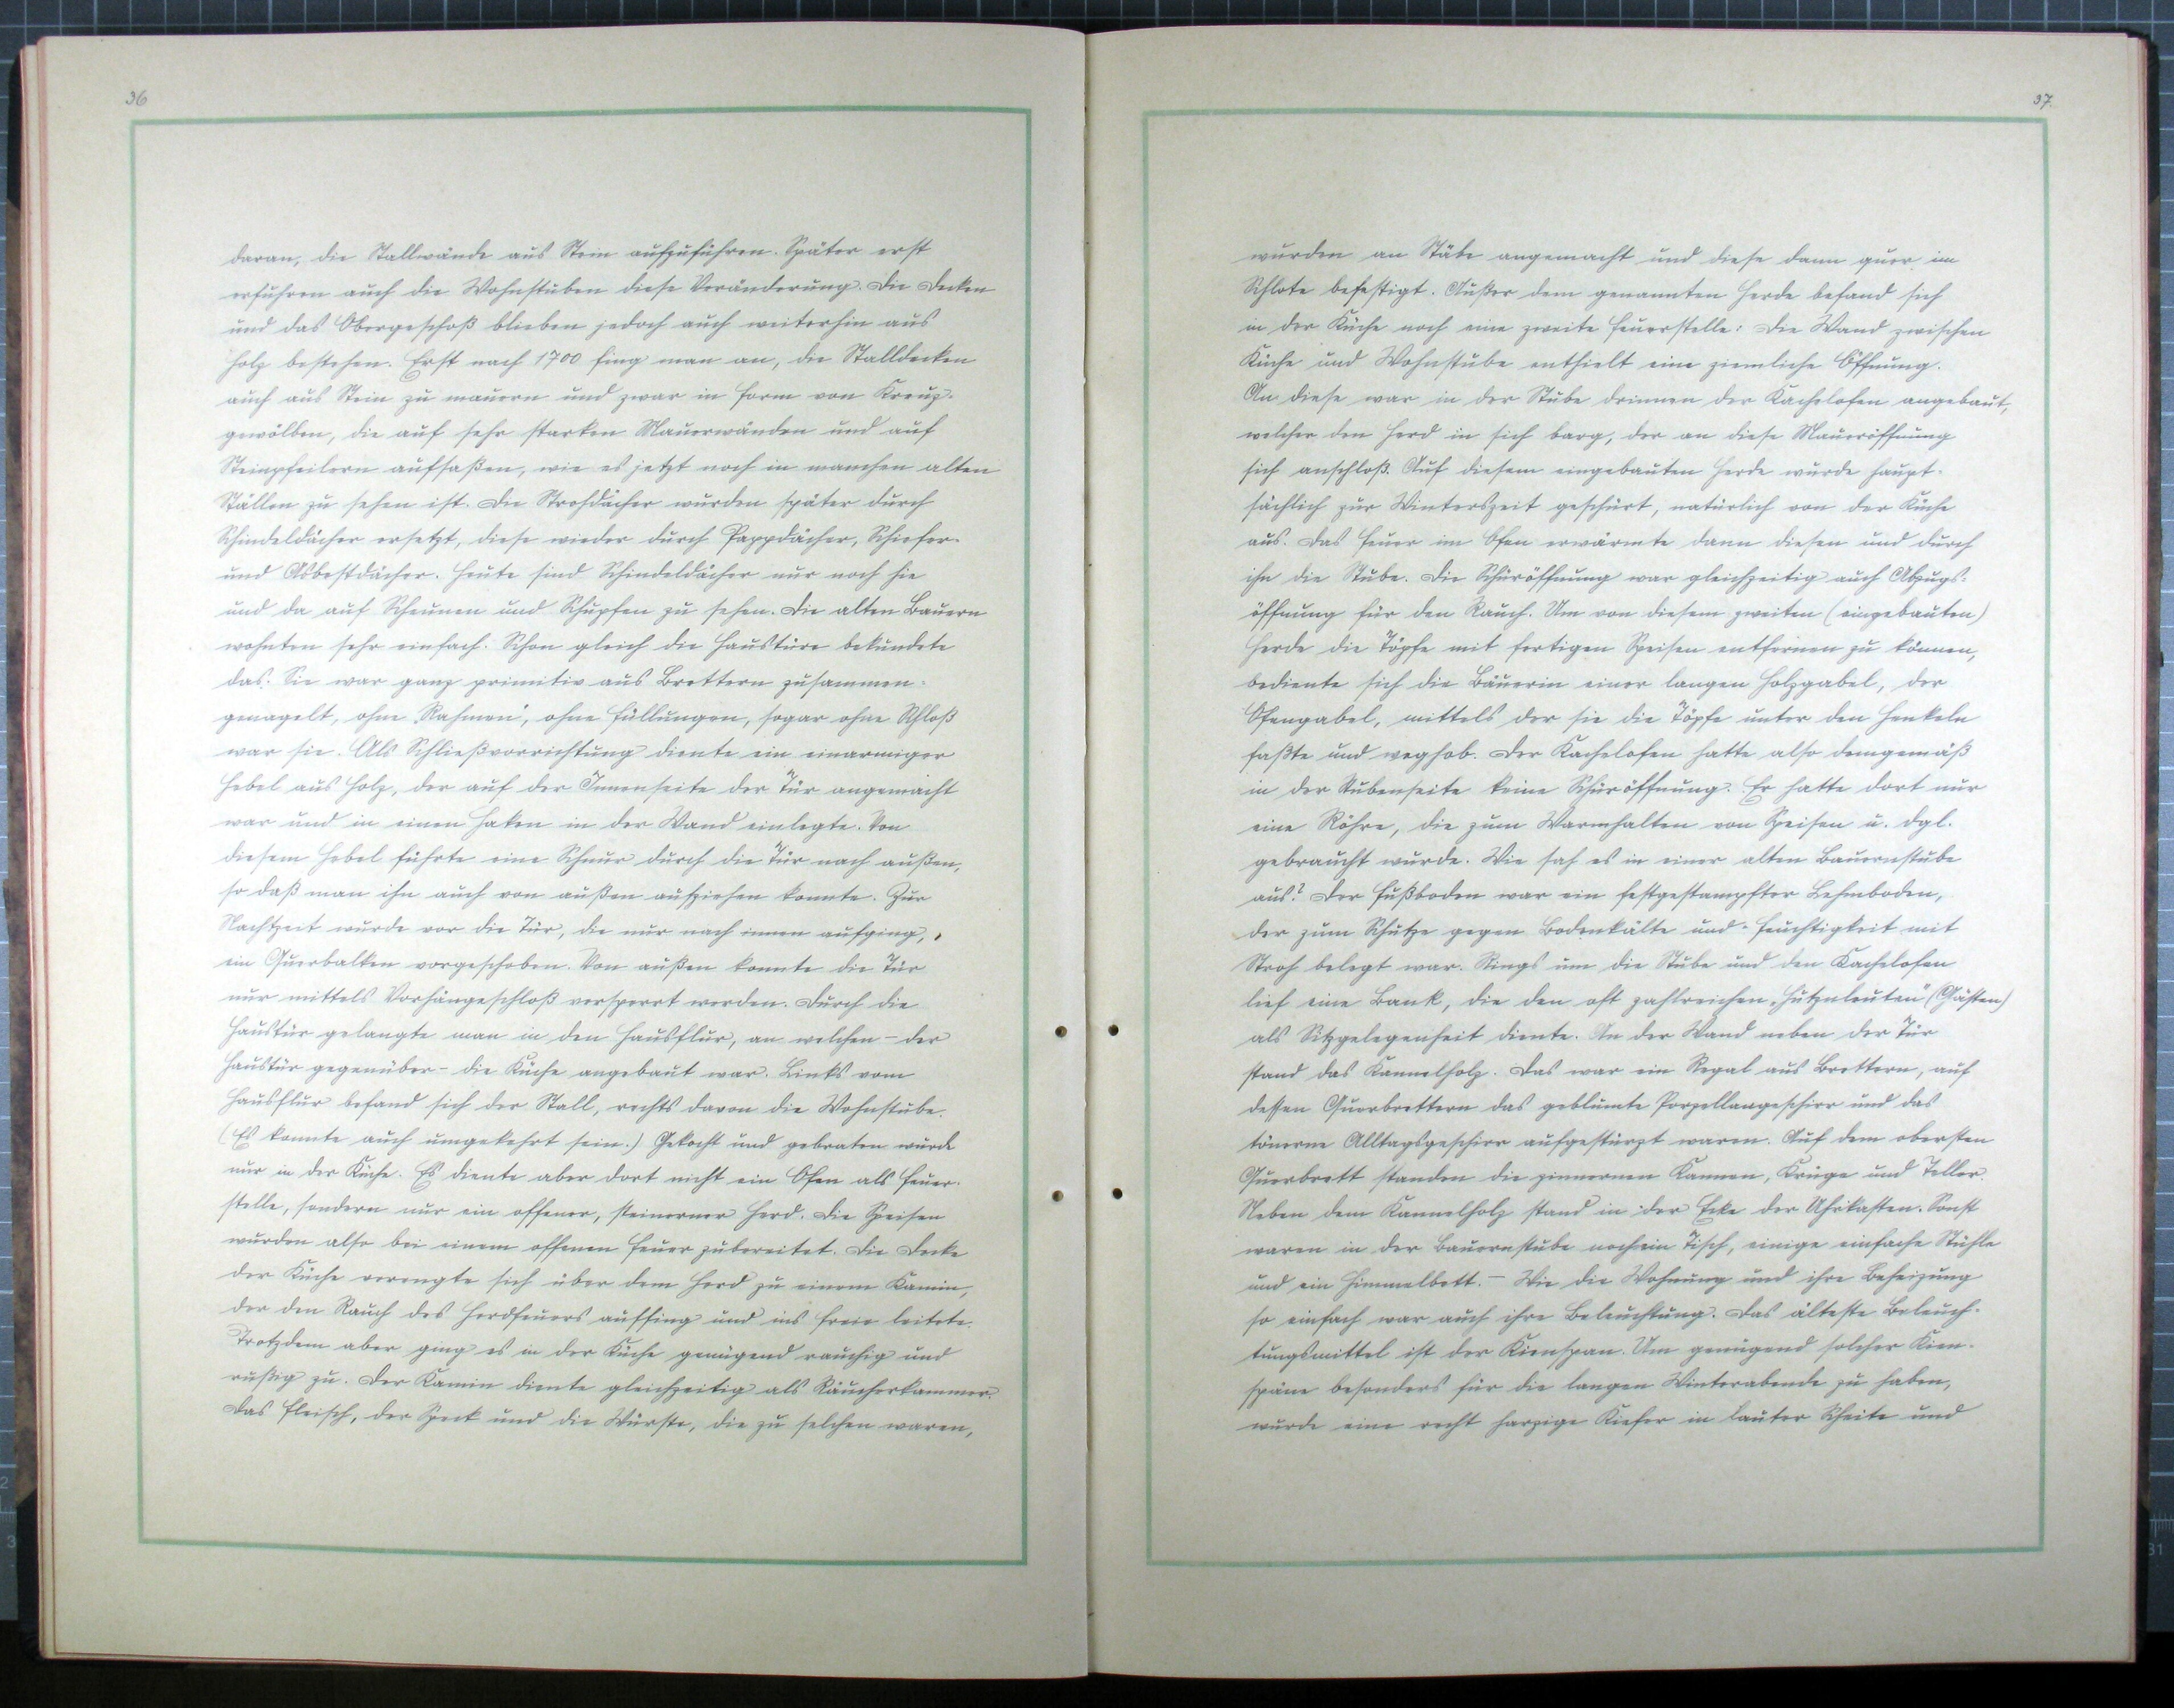 36
daran, die Stallwände aus Stein aufzuführen. Später erst
erfuhren auch die Wohnstuben diese Veränderung. Die Decken
und das Obergeschoß blieben jedoch auch weiterhin aus
Holz bestehen. Erst nach 1700 fing man an, die Stalldecken
auch aus Stein zu mauern und zwar in Form von Kreuz-
gewölben, die auf sehr starken Mauerwänden und auf
Steinpfeilern aufsaßen, wie es jetzt noch in manchen alten
Ställen zu sehen ist. Die Strohdächer wurden später durch
Schindeldächer ersetzt, diese wieder durch Pappdächer, Schiefer-
und Asbestdächer. Heute sind Schindeldächer nur noch hie
und da auf Scheunen und Schupfen zu sehen. Die alten Bauern
wohnten sehr einfach. Schon gleich die Haustüre bekundete
das. Sie war ganz primitiv aus Brettern zusammen-
genagelt, ohne „Rahmen“, ohne Füllungen, sogar ohne Schloß
war sie. Als Schließvorrichtung diente ein einarmiger
Hebel aus Holz, der auf der Innenseite der Tür angemacht
war und in einen Haken in der Wand einlegte. Von
diesem Hebel führte eine Schnur durch die Tür nach außen,
so daß man ihn auch von außen aufziehen konnte. Zur
Nachtzeit wurde vor die Tür, die nur nach innen aufging,
ein Querbalken vorgeschoben. Von außen konnte die Tür
nur mittels Vorhängeschloß versperrt werden. Durch die
Haustür gelangte man in den Hausflur, an welchen – der
Haustür gegenüber – die Küche angebaut war. Links vom
Hausflur befand sich der Stall, rechts davon die Wohnstube.
(Es konnte auch umgekehrt sein.) Gekocht und gebraten wurde
nur in der Küche. Es diente aber dort nicht ein Ofen als Feuer-
stelle, sondern nur ein offener, steinerner Herd. Die Speisen
wurden also bei einem offenen Feuer zubereitet. Die Decke
der Küche verengte sich über dem Herd zu einem Kamin,
der den Rauch des Herdfeuers auffing und ins Freie leitete.
Trotzdem aber ging es in der Küche genügend rauchig und
rußig zu. Der Kamin diente gleichzeitig als Räucherkammer.
Das Fleisch, der Speck und die Würste, die zu selchen waren,
37.
wurden an Stäbe angemacht und diese dann quer im
Schlote befestigt. Außer dem genannten Herde befand sich
in der Küche noch eine zweite Feuerstelle: Die Wand zwischen
Küche und Wohnstube enthielt eine ziemliche Öffnung.
An diese war in der Stube drinnen der Kachelofen angebaut,
welcher den Herd in sich barg, der an diese Maueröffnung
sich anschloß. Auf diesem eingebauten Herde wurde haupt-
sächlich zur Winterszeit geschürt, natürlich von der Küche
aus. Das Feuer im Ofen erwärmte dann diesen und durch
ihn die Stube. Die Schüröffnung war gleichzeitig auch Abzugs-
öffnung für den Rauch. Um von diesem zweiten (eingebauten)
Herde die Töpfe mit fertigen Speisen entfernen zu können,
bediente sich die Bäuerin einer langen Holzgabel, der
Ofengabel, mittels der sie die Töpfe unter den Henkeln
faßte und weghob. Der Kachelofen hatte also demgemäß
in der Stubenseite keine Schüröffnung. Er hatte dort nur
eine Röhre, die zum Warmhalten von Speisen u. dgl.
gebraucht wurde. Wie sah es in einer alten Bauernstube
aus? Der Fußboden war ein festgestampfter Lehmboden,
der zum Schutze gegen Bodenkälte und -Feuchtigkeit mit
Stroh belegt war. Rings um die Stube und den Kachelofen
lief eine Bank, die den oft zahlreichen „Hutznleuten“ (Gästen)
als Sitzgelegenheit diente. An der Wand neben der Tür
stand das Kannelholz. Das war ein Regal aus Brettern, auf
dessen Querbrettern das geblümte Porzellangeschirr und das
tönerne Alltagsgeschirr aufgestürzt waren. Auf dem obersten
Querbrett standen die zinnernen Kannen, Krüge und Teller.
Neben dem Kannelholz stand in der Ecke der Uhrkasten. Sonst
waren in der Bauernstube noch ein Tisch, einige einfache Stühle
und ein Himmelbett. – Wie die Wohnung und ihre Beheizung
so einfach war auch ihre Beleuchtung. Das älteste Beleuch-
tungsmittel ist der Kienspan. Um genügend solcher Kien-
späne besonders für die langen Winterabende zu haben,
wurde eine recht harzige Kiefer in lauter Scheite und